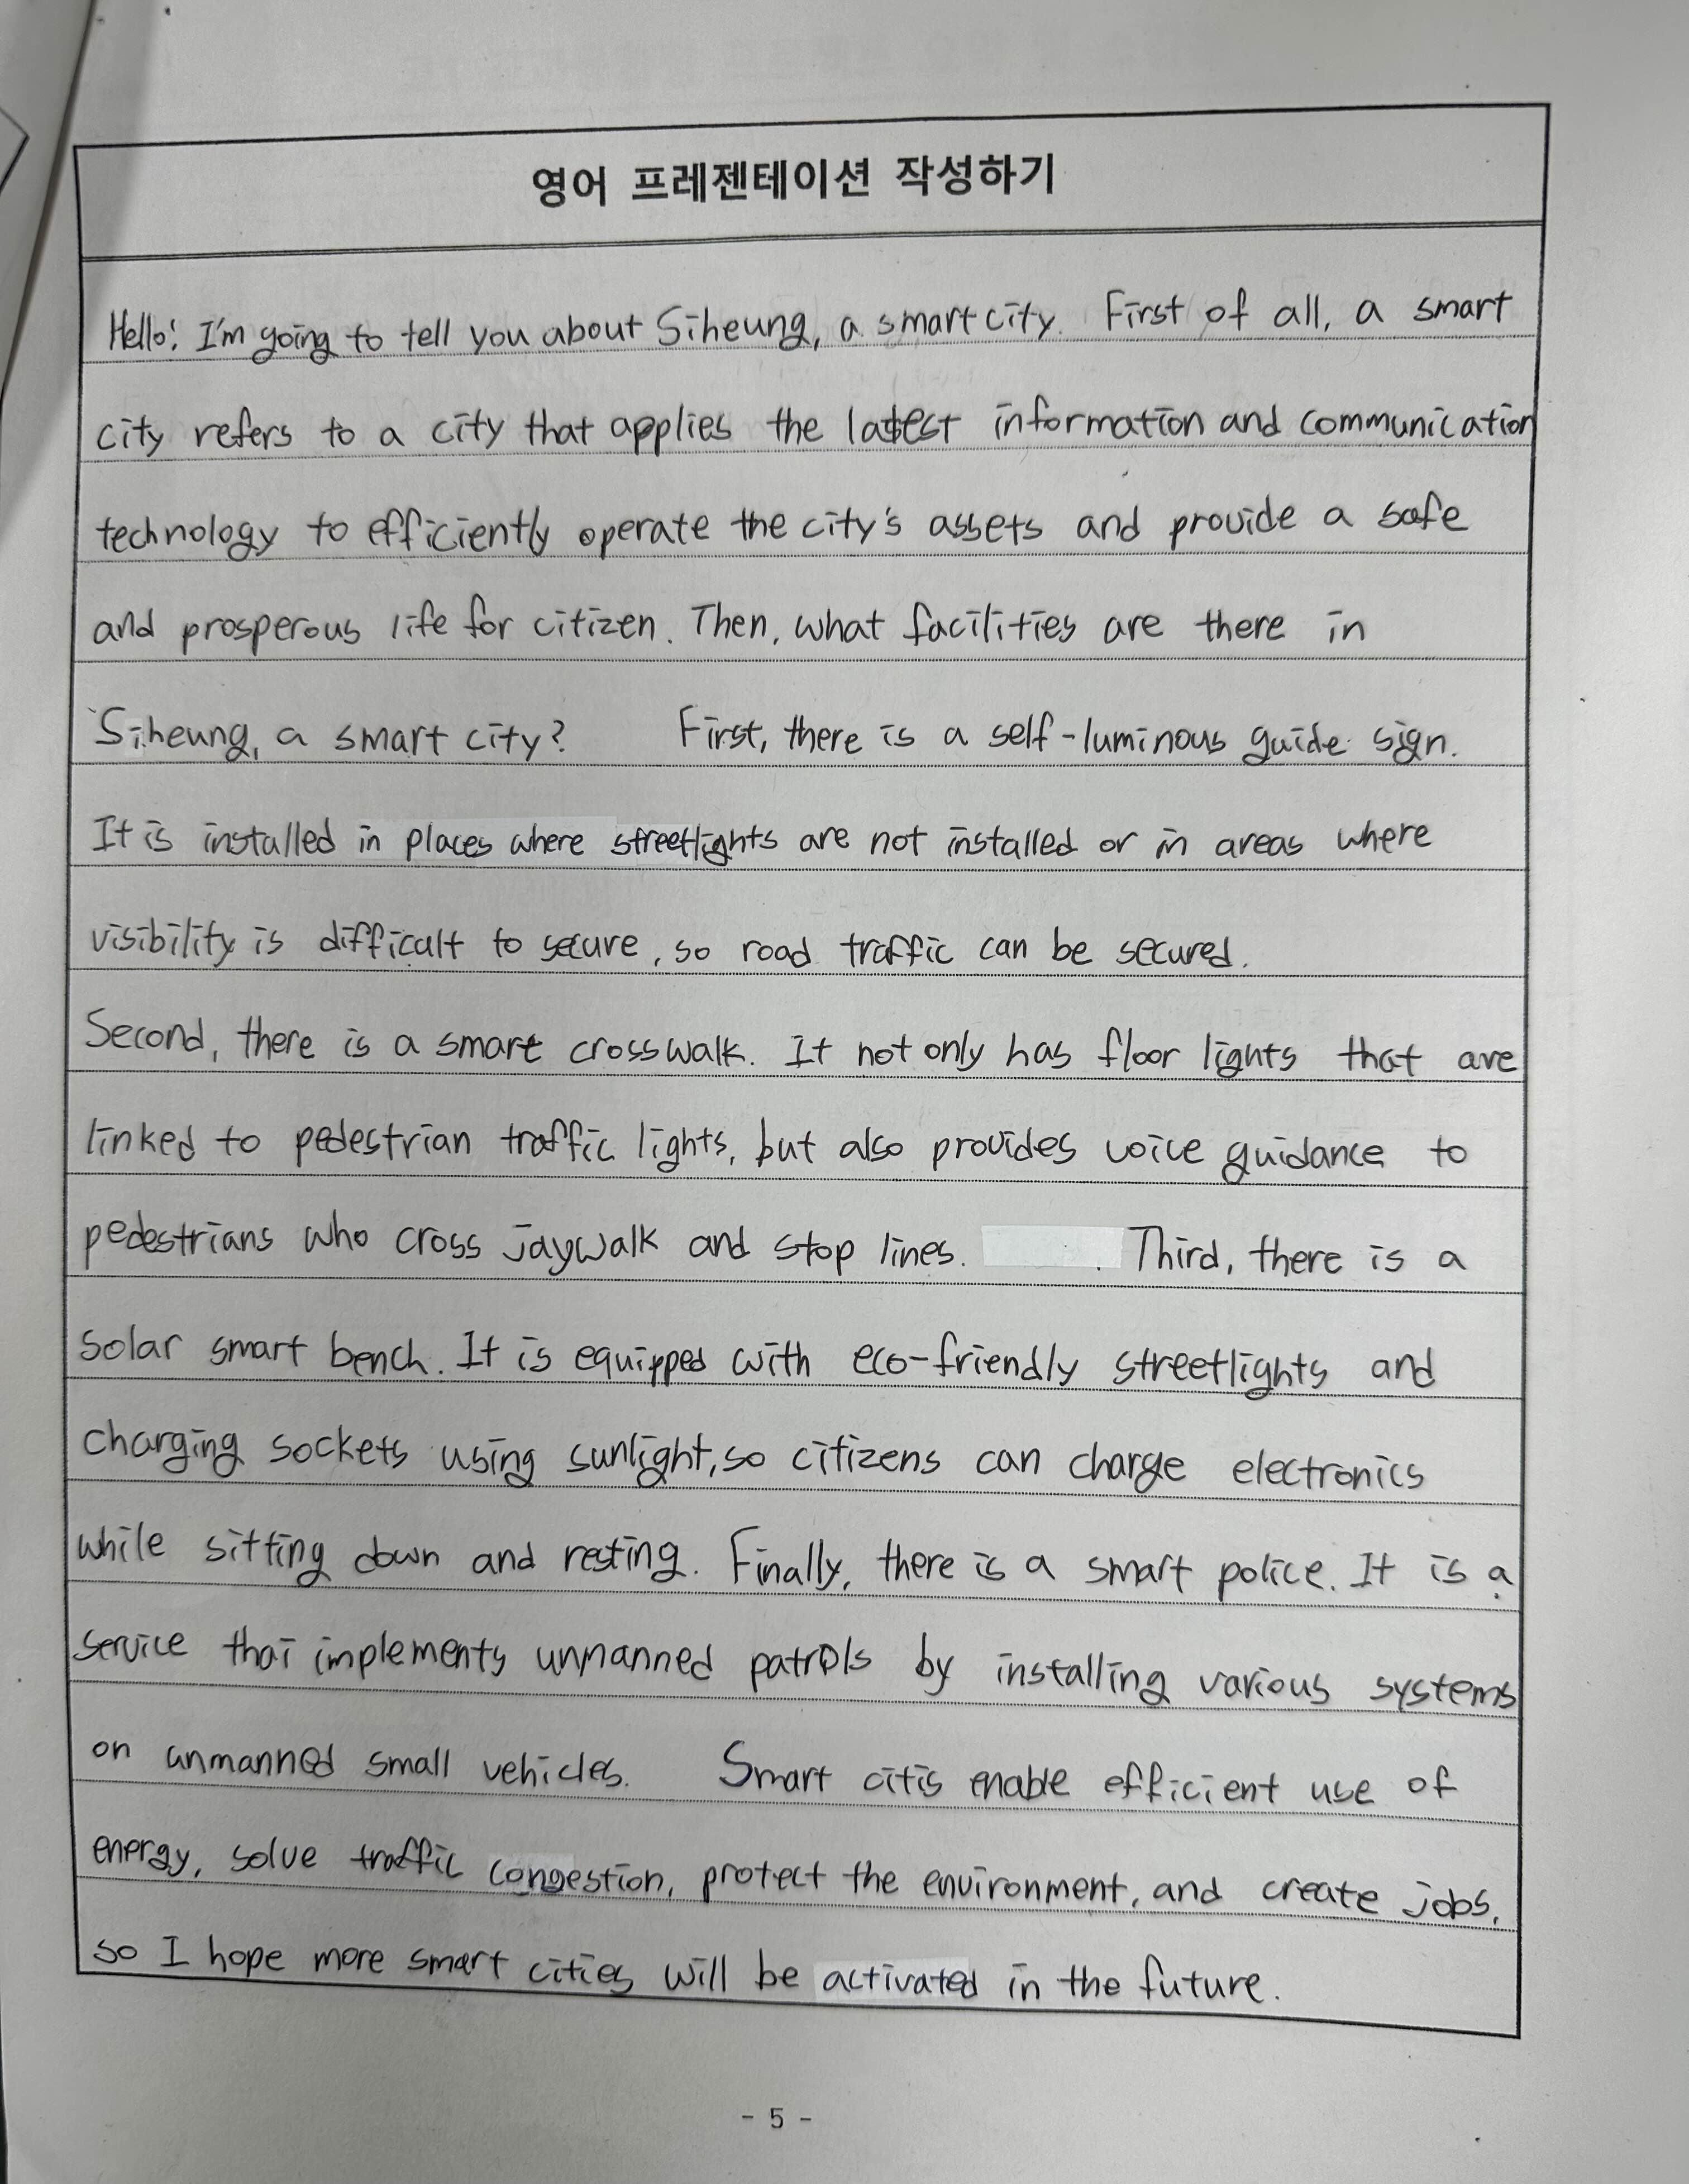 영어 프레젠테이션 작성하기
Hello! I'm going to tell you about Siheung, a smart city. First of all, a smart
city refers to a city that applies the latest information and communication
technology to efficiently operate the city's assets and provide a safe
and prosperous life for citizen. Then, what facilities are there in
Siheung, a smart city? First, there is a self-luminous guide sign.
It is installed in places where streetlights are not installed or in areas where
visibility is difficult to secure, so road traffic can be secured.
Second, there is a smart crosswalk. It not only has floor lights that are
linked to pedestrian traffic lights, but also provides voice guidance to
pedestrians who cross jaywalk and stop lines. Third, there is a
solar smart bench. It is equipped with eco-friendly streetlights and
charging sockets using sunlight, so citizens can charge electronics
while sitting down and resting. Finally, there is a smart police. It is a
service that implements unmanned patrols by installing various systems
on unmanned small vehicles. Smart citis enable efficient use of
energy, solve traffic congestion, protect the environment, and create jobs,
so I hope more smart cities will be activated in the future.
- 5 -